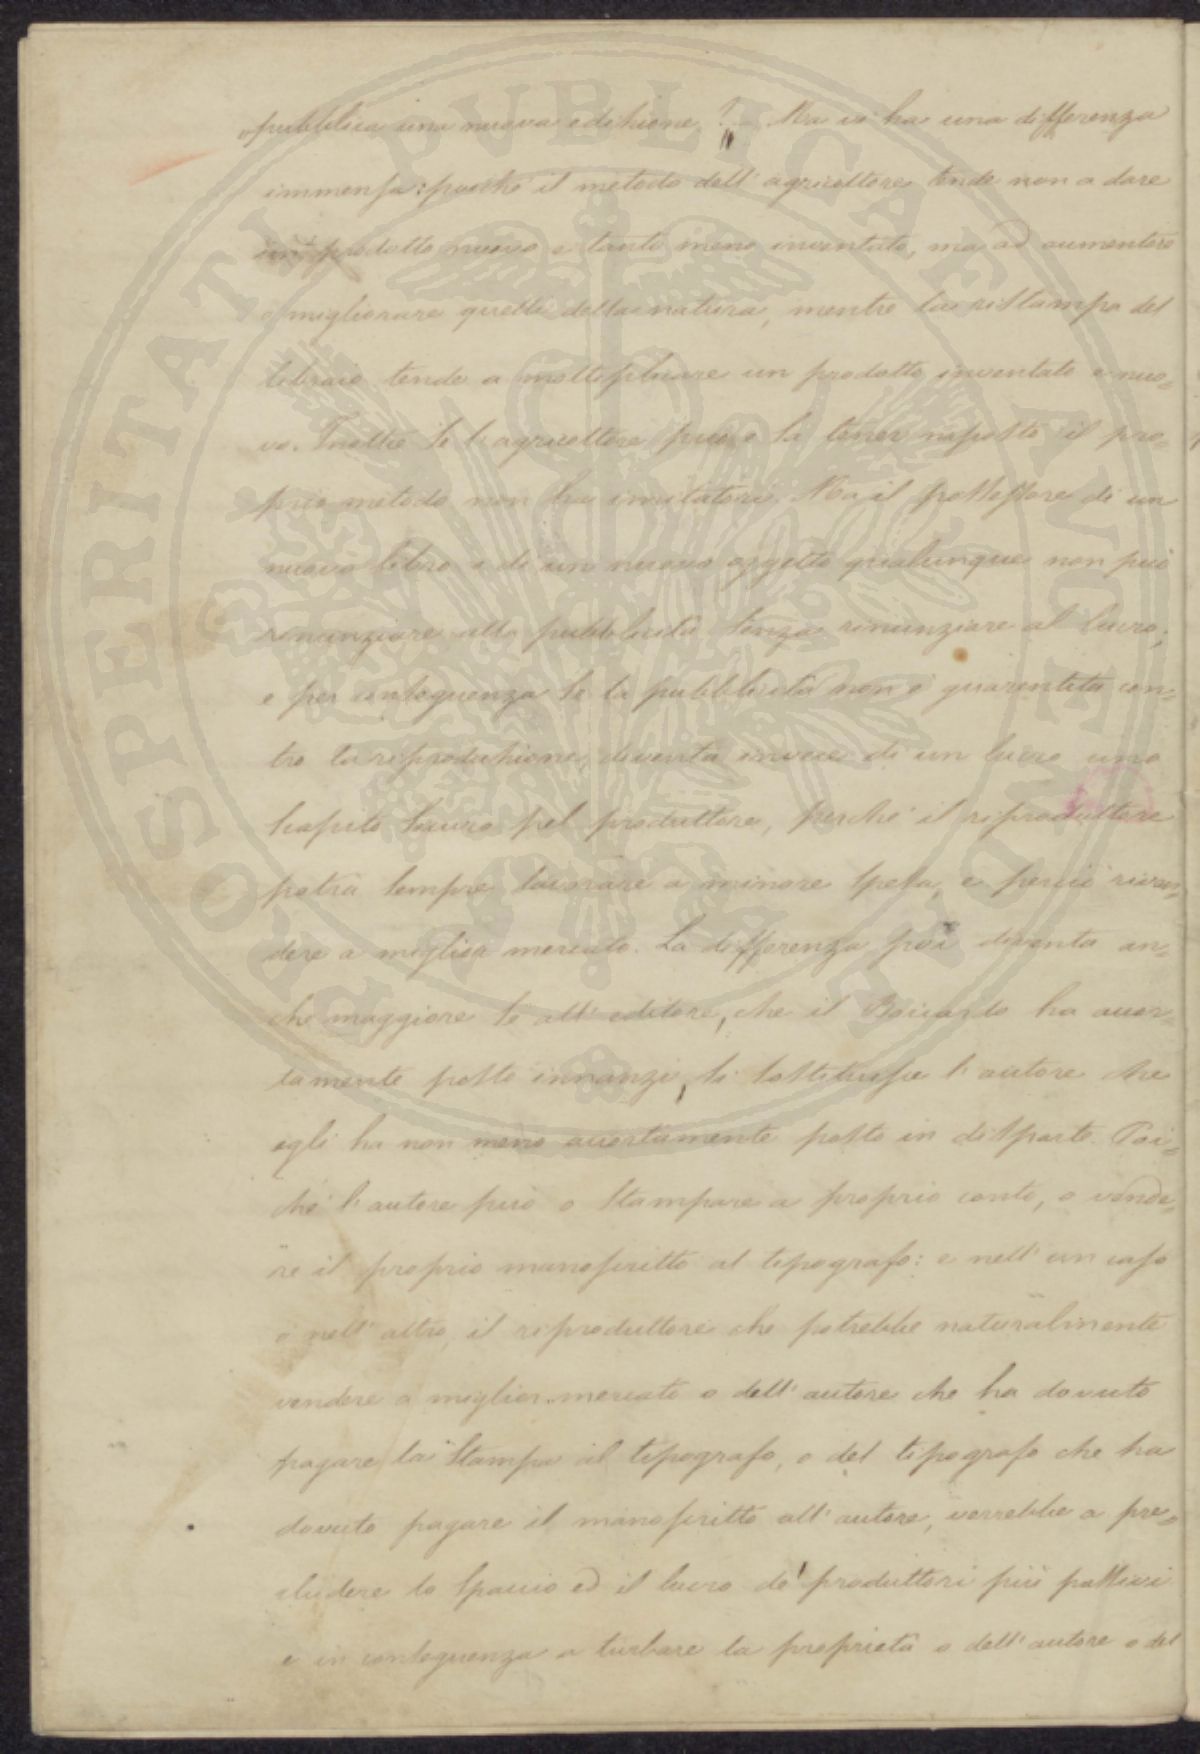 „pubblica una nuova edizione? „ Ma vi ha una differenza
immensa: poiché il metodo dell'agricoltore tende non a dare
un prodotto nuovo e tanto meno inventato, ma ad aumentare
o migliorare quelli della natura, mentre la ristampa del
libraio tende a moltiplicare un prodotto inventato e nuo=
vo. Inoltre se l'agricoltore può e sa tener riposto il pro=
prio metodo non ha imitatori. Ma il possessore di un
nuovo libro o di un nuovo oggetto qualunque non può
rinunziare alla pubblicità senza rinunziare al lucro;
e per conseguenza se la pubblicità non è guarentita con=
tro la riproduzione, diventa invece di un lucro uno
scapito sicuro pel produttore, perché il riproduttore
potrà sempre lavorare a minore spesa, e perciò riven=
dere a miglior mercato. La differenza poi diventa an=
che maggiore se all'editore, che il Boccardo ha accor=
tamente posto innanzi, si sostituisce l'autore che
egli ha non meno accortamente posto in disparte. Poi=
ché l'autore può o stampare a proprio conto, o vende=
re il proprio manoscritto al tipografo: e nell'un caso
o nell'altro, il riproduttore che potrebbe naturalmente
vendere a miglior mercato o dell'autore che ha dovuto
pagare la stampa al tipografo, o del tipografo che ha
dovuto pagare il manoscritto all'autore, verrebbe a pre=
cludere lo spaccio ed il lucro de' produttori più passivi
e in conseguenza a turbare la proprietà o dell'autore o del
PROSPERITATI PVBLICAE AVGENDAE